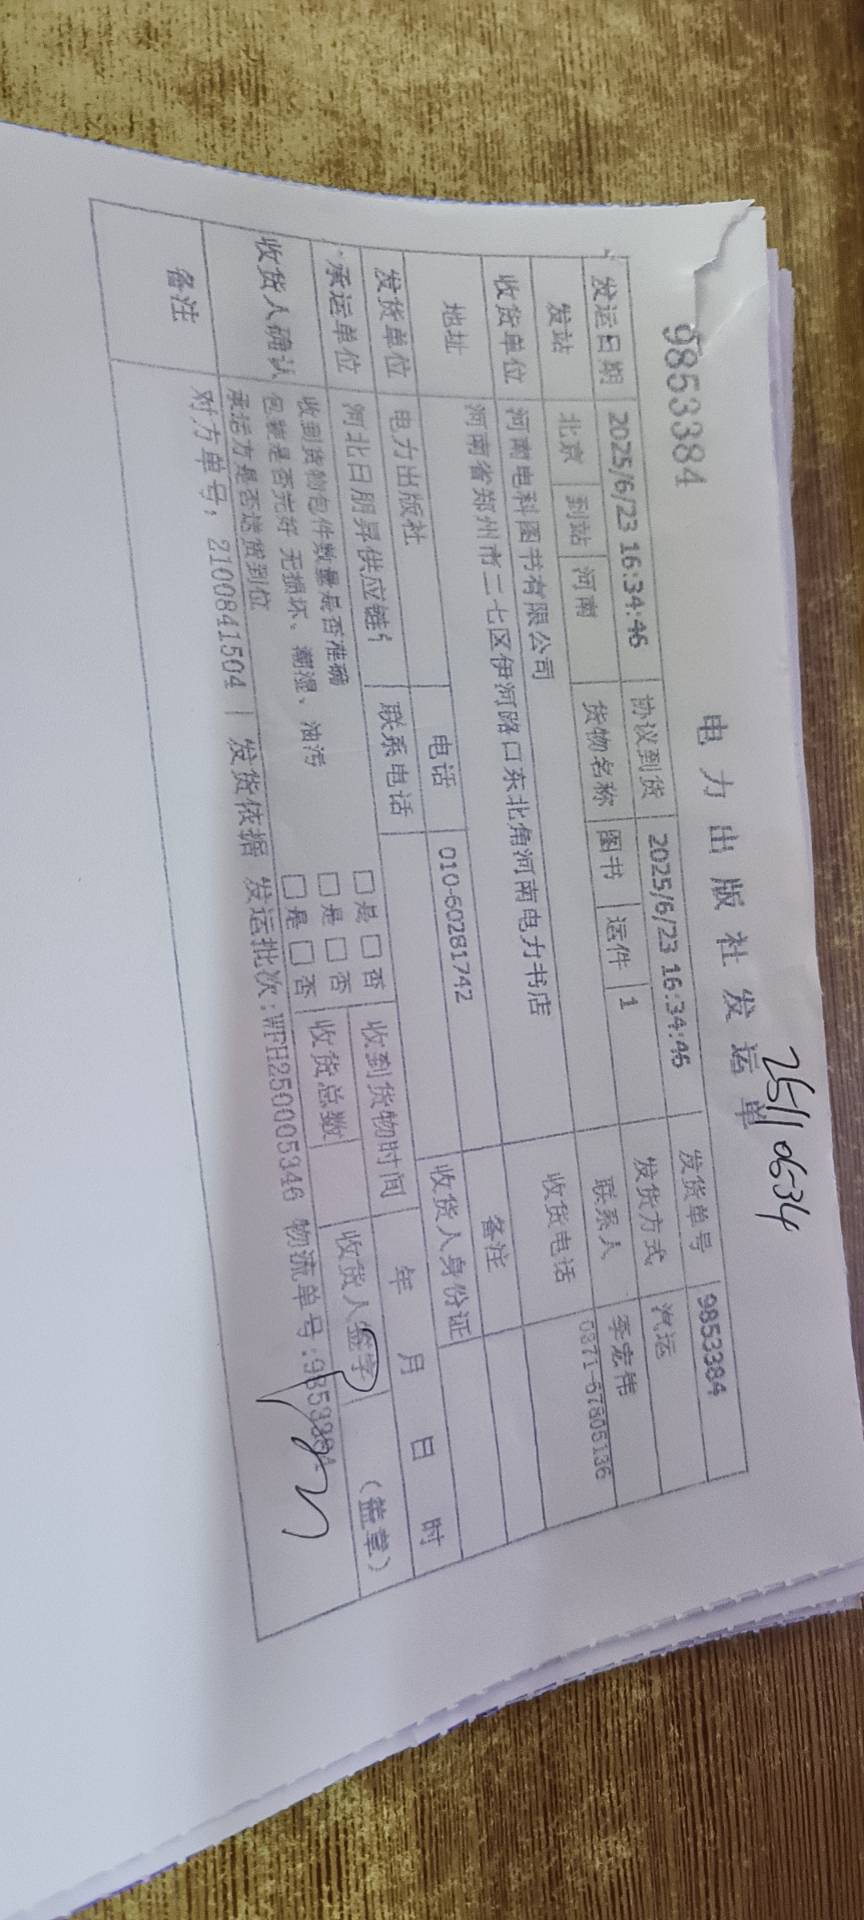 25110534
电力出版社发运单
9853384
发运日期 2025/6/23 16:34:46 协议到货 2025/6/23 16:34:46 发货单号 9853384
发站 北京 到站 河南 货物名称 图书 运件 1 发货方式 汽运
收货单位 河南电科图书有限公司 联系人 李宏伟
地址 河南省郑州市二七区伊河路口东北角河南电力书店 收货电话 0371-67905136
发货单位 电力出版社 电话 010-60281742 备注
承运单位 河北日朋昇供应链 联系电话 收货人身份证
收货人确认 收到货物包件数量是否准确 □是 □否 收到货物时间 年 月 日 时
包装是否完好 无损坏、潮湿、油污 □是 □否 收货总数 收货人签字 (盖章)
承运方是否送货到位 □是 □否
备注 对方单号:2100841504 | 发货依据 发运批次:WFH250005346 物流单号:9853384